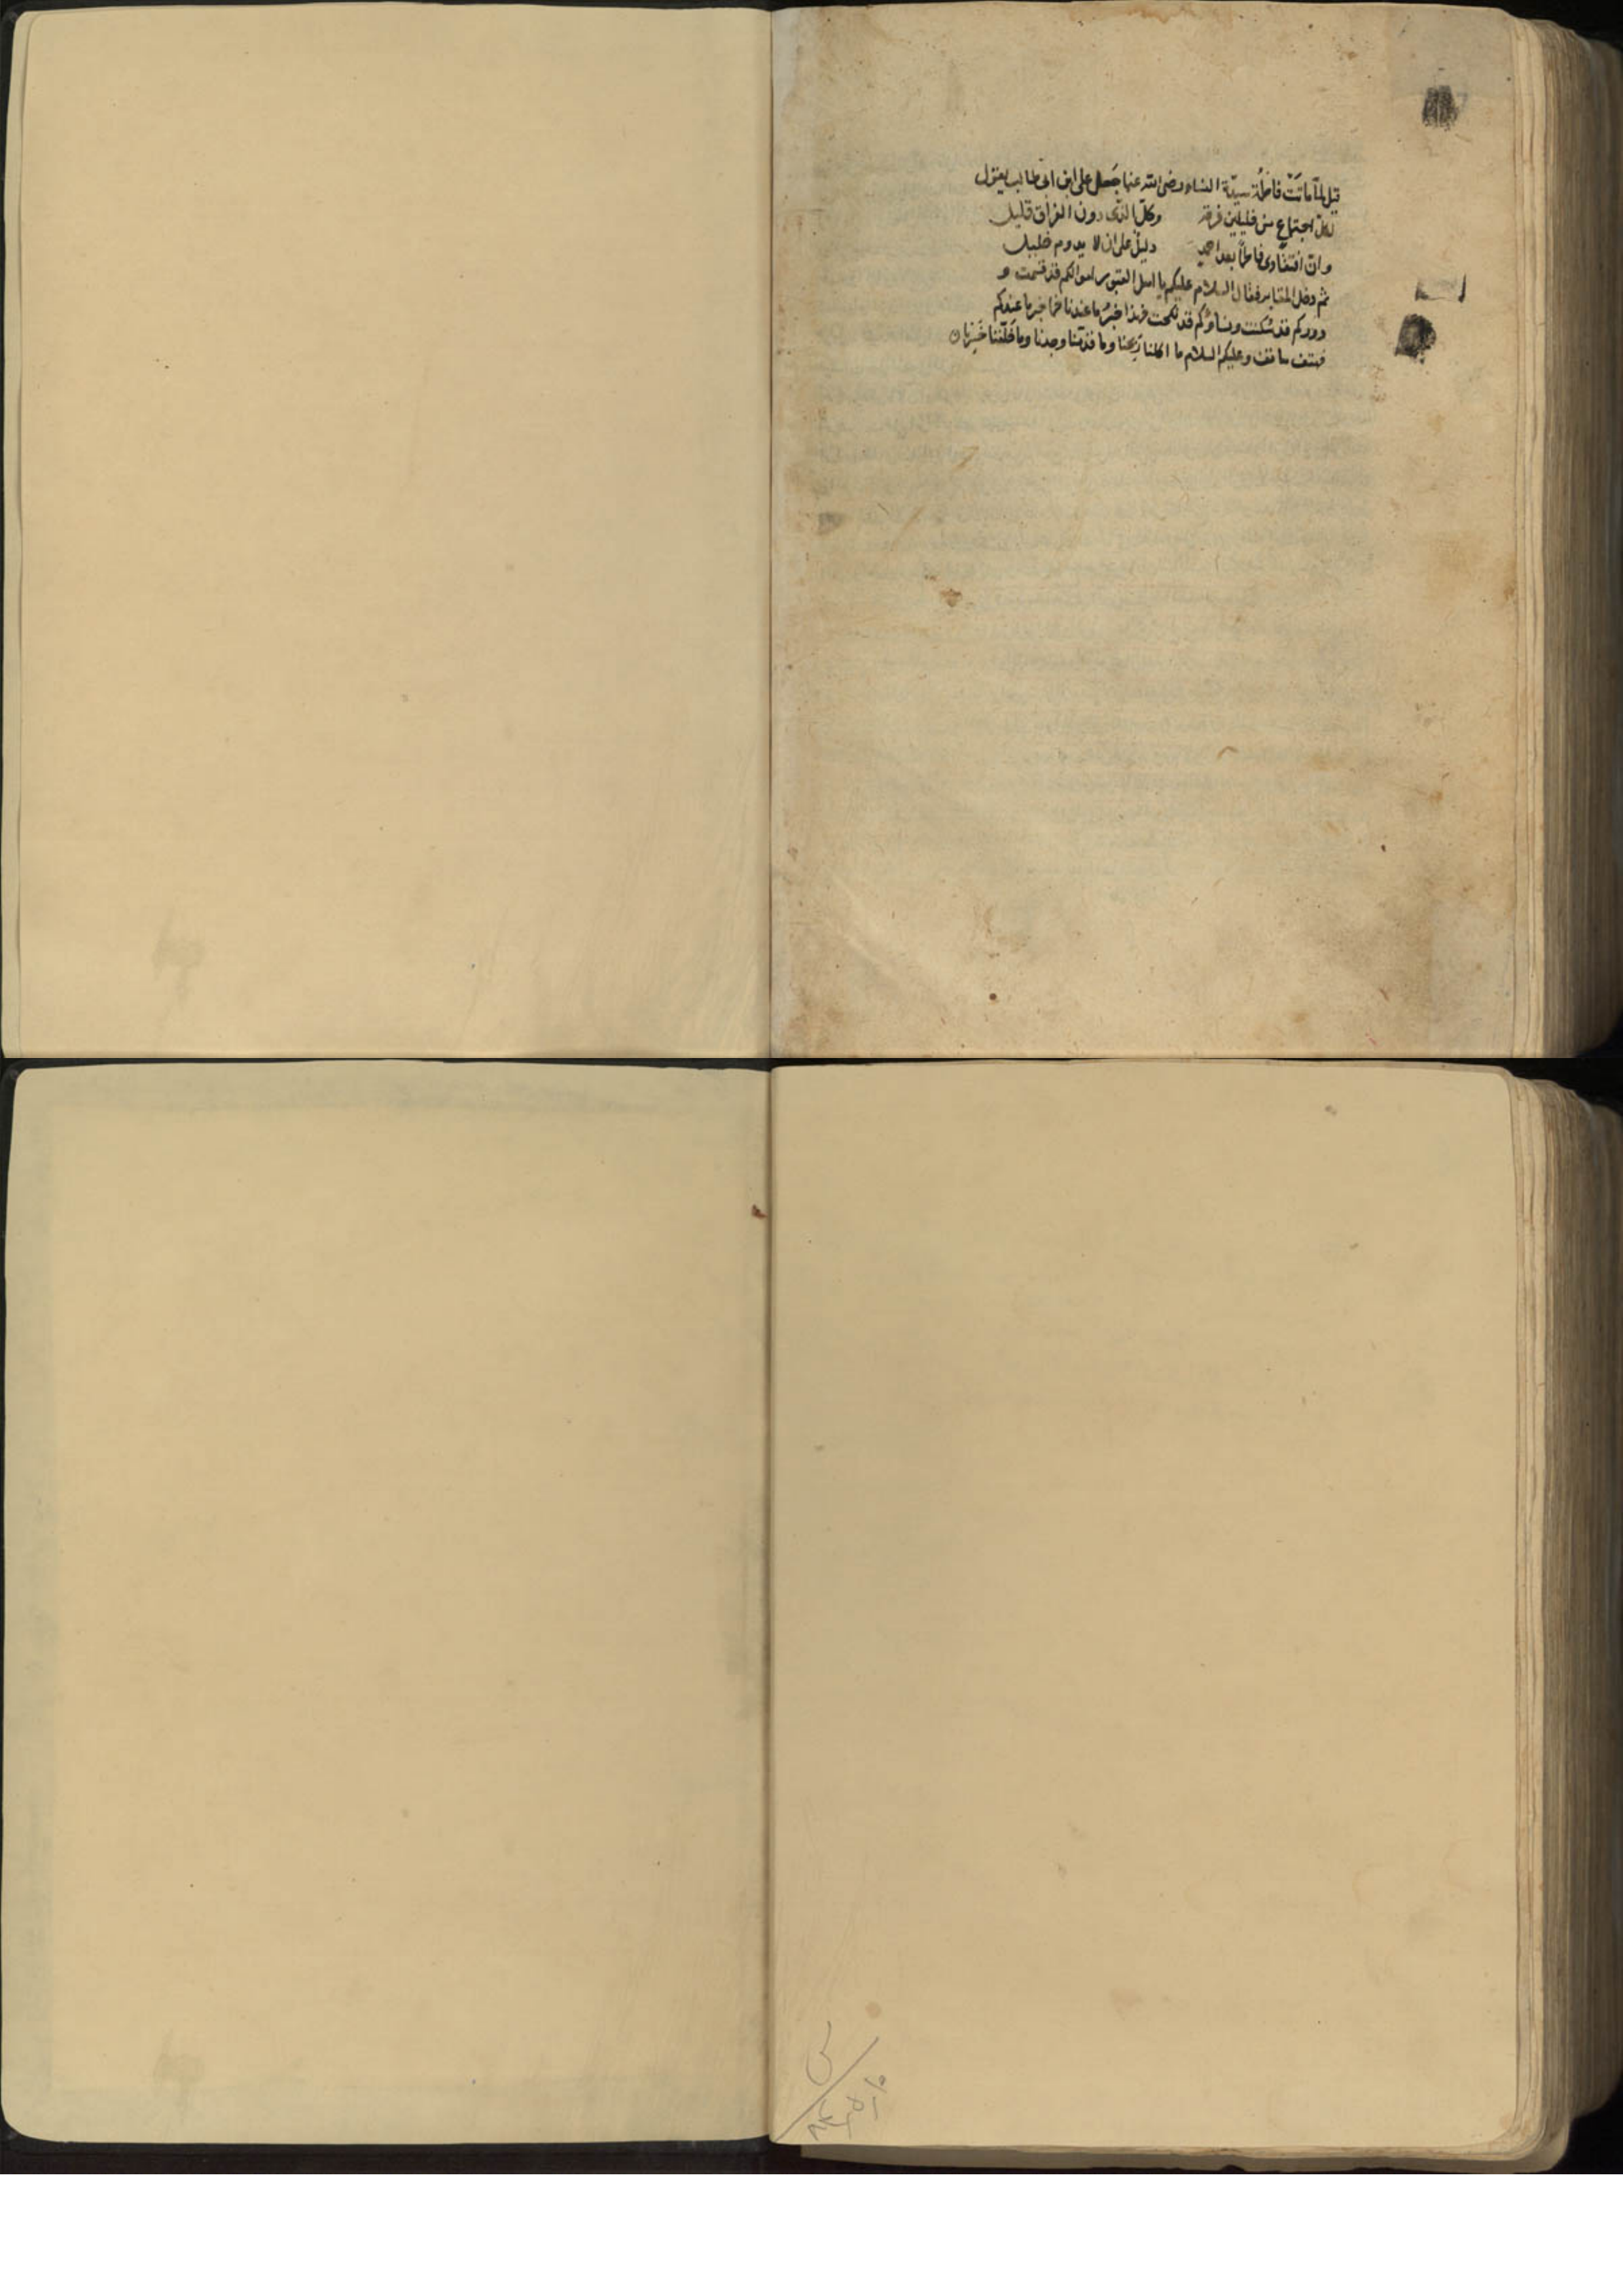 قيل لمّا ماتَتْ فاطمة سيّدة النساء رضى الله عنها جَعَل على ابن ابى طالب يقول
لكلّ اجتماع من خليلين فرقة وكلّ الذى دون الفراق قليل
وانّ افتقادى فاطمًا بعد احمد دليلٌ على ان لا يدوم خليل
ثم دخل المقابر فقال السلام عليكم يا اهل القبور اموالكم قد قسمت و
دوركم قد سُكنت ونساؤكم قد نكحت فهذا خبرُ ما عندنا فما خبر ما عندكم
فهتف هاتف وعليكم السلام ما اكلنا رَبِحنا وما قدّمنا وجدنا وما خَلّفنا خَسِرنا